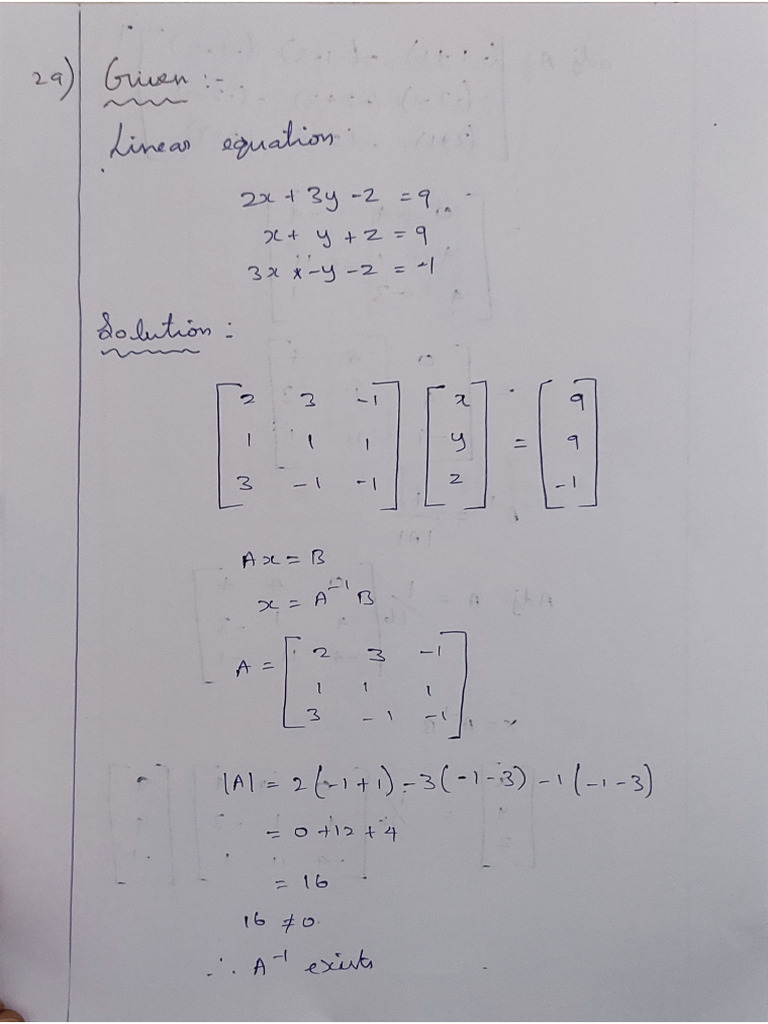 29) Given :-
Linear equation
2x + 3y - z = 9
x + y + z = 9
3x - y - z = -1
Solution :
[2 3 -1] [x] [9]
[1 1 1] [y] = [9]
[3 -1 -1] [z] [-1]
Ax = B
x = A⁻¹ B
A = [2 3 -1]
[1 1 1]
[3 -1 -1]
|A| = 2(-1+1) - 3(-1-3) - 1(-1-3)
= 0 + 12 + 4
= 16
16 ≠ 0
∴ A⁻¹ exists